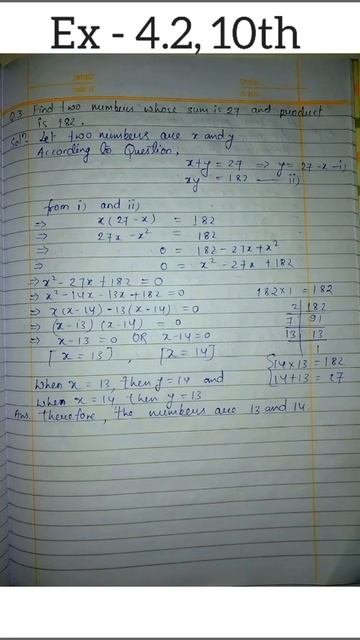 Ex - 4.2, 10th
Q.3 Find two numbers whose sum is 27 and product
is 182.
Solⁿ. Let two numbers are x and y
According to Question,
x+y = 27 => y = 27-x —i)
xy = 182 — ii)
from i) and ii)
=> x(27-x) = 182
=> 27x - x² = 182
=> 0 = 182 - 27x + x²
=> 0 = x² - 27x + 182
=> x² - 27x + 182 = 0
=> x² - 14x - 13x + 182 = 0
=> x(x-14) - 13(x-14) = 0
=> (x-13) (x-14) = 0
=> x-13 = 0 OR x-14=0
[x = 13], [x = 14]
182×1 = 182
2 | 182
7 | 91
13 | 13
1
{14×13 = 182
{14+13 = 27
When x = 13, Then y = 14 and
when x = 14 then y = 13
Ans. Therefore, the numbers are 13 and 14.